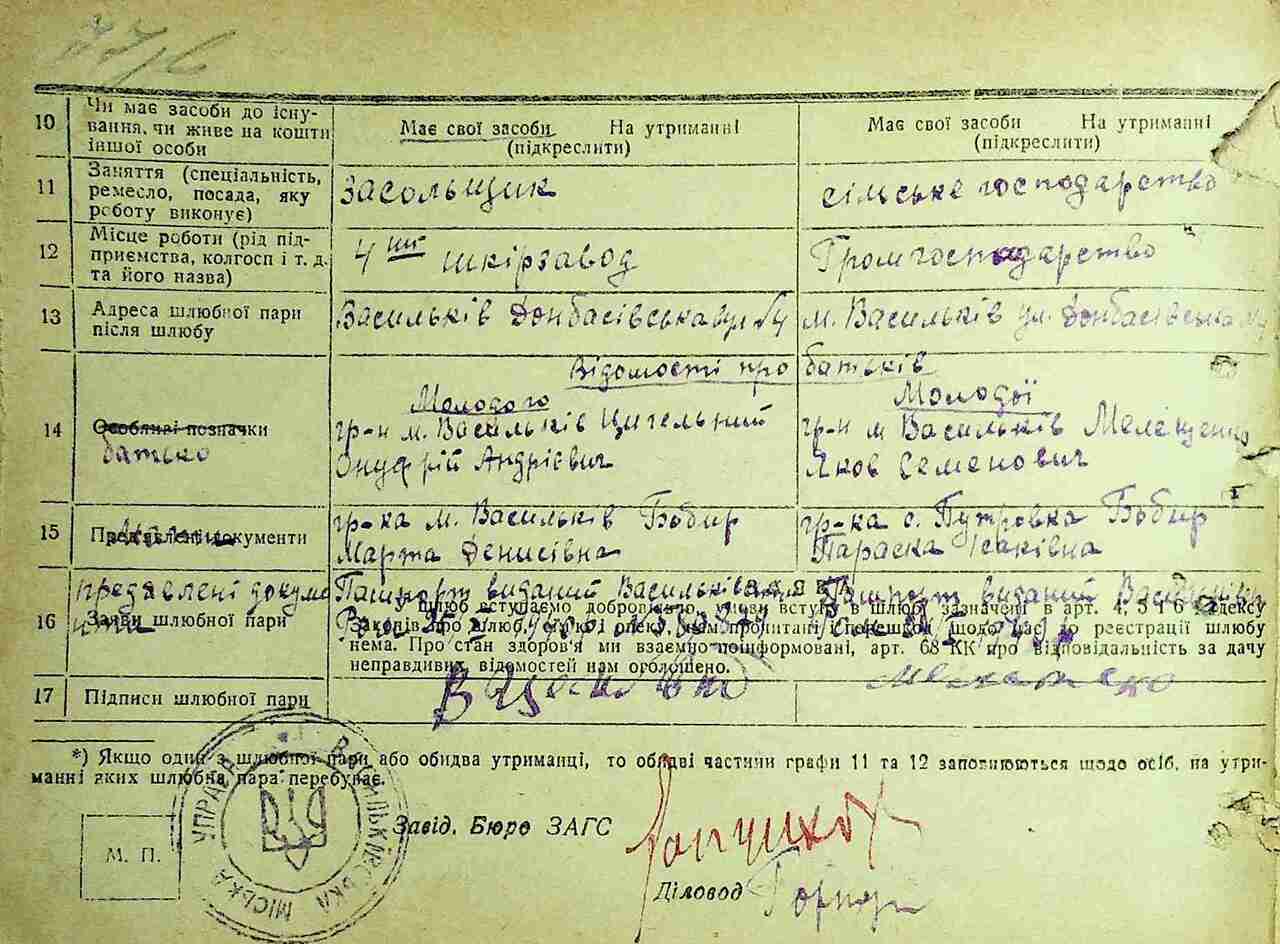 10
Чи має засоби до існу-
вання, чи живе на кошти
іншої особи
Має свої засоби На утриманні
(підкреслити)
Має свої засоби На утриманні
(підкреслити)
11
Заняття (спеціальність,
ремесло, посада, яку
роботу виконує)
Засольщик
сільське господарство
12
Місце роботи (рід під-
приємства, колгосп і т. д.
та його назва)
4 ший шкірзавод
Громгосподарство
13
Адреса шлюбної пари
після шлюбу
Васильків Донбасівська вул
м. Васильків ул. Донбасівська
Відомості про батьків
14
Особливі позначки
батько
Молодого
гр-н м. Васильків Цигельний
Онуфрій Андрієвич
Молодої
гр-н м Васильків Мелещенко
Яков Семенович
15
Пред'явлені документи
гр-ка м. Васильків Бобир
Марта Денисівна
гр-ка с. Путровка Бобир
Параска Ісаківна
16
Заяви шлюбної пари
предавлені докуме
нти
Пашпорт виданий
Пашпорт виданий
У шлюб вступаємо добровільно, умови вступу в шлюб зазначені в арт. 4, 5 і 6 Кодексу
Законів про шлюб, сім'ю і опеку, нам прочитані і перешкод щодо нас до реєстрації шлюбу
нема. Про стан здоров'я ми взаємно поінформовані, арт. 68 КК про відповідальність за дачу
неправдивих відомостей нам оголошено.
17
Підписи шлюбної пари
*) Якщо один з шлюбної пари або обидва утриманці, то обидві частини графи 11 та 12 заповнюються щодо осіб, на утри-
манні яких шлюбна пара перебуває.
М. П.
ВАСИЛЬКІВСЬКА МІСЬКА УПРАВА
Завід. Бюро ЗАГС
Діловод